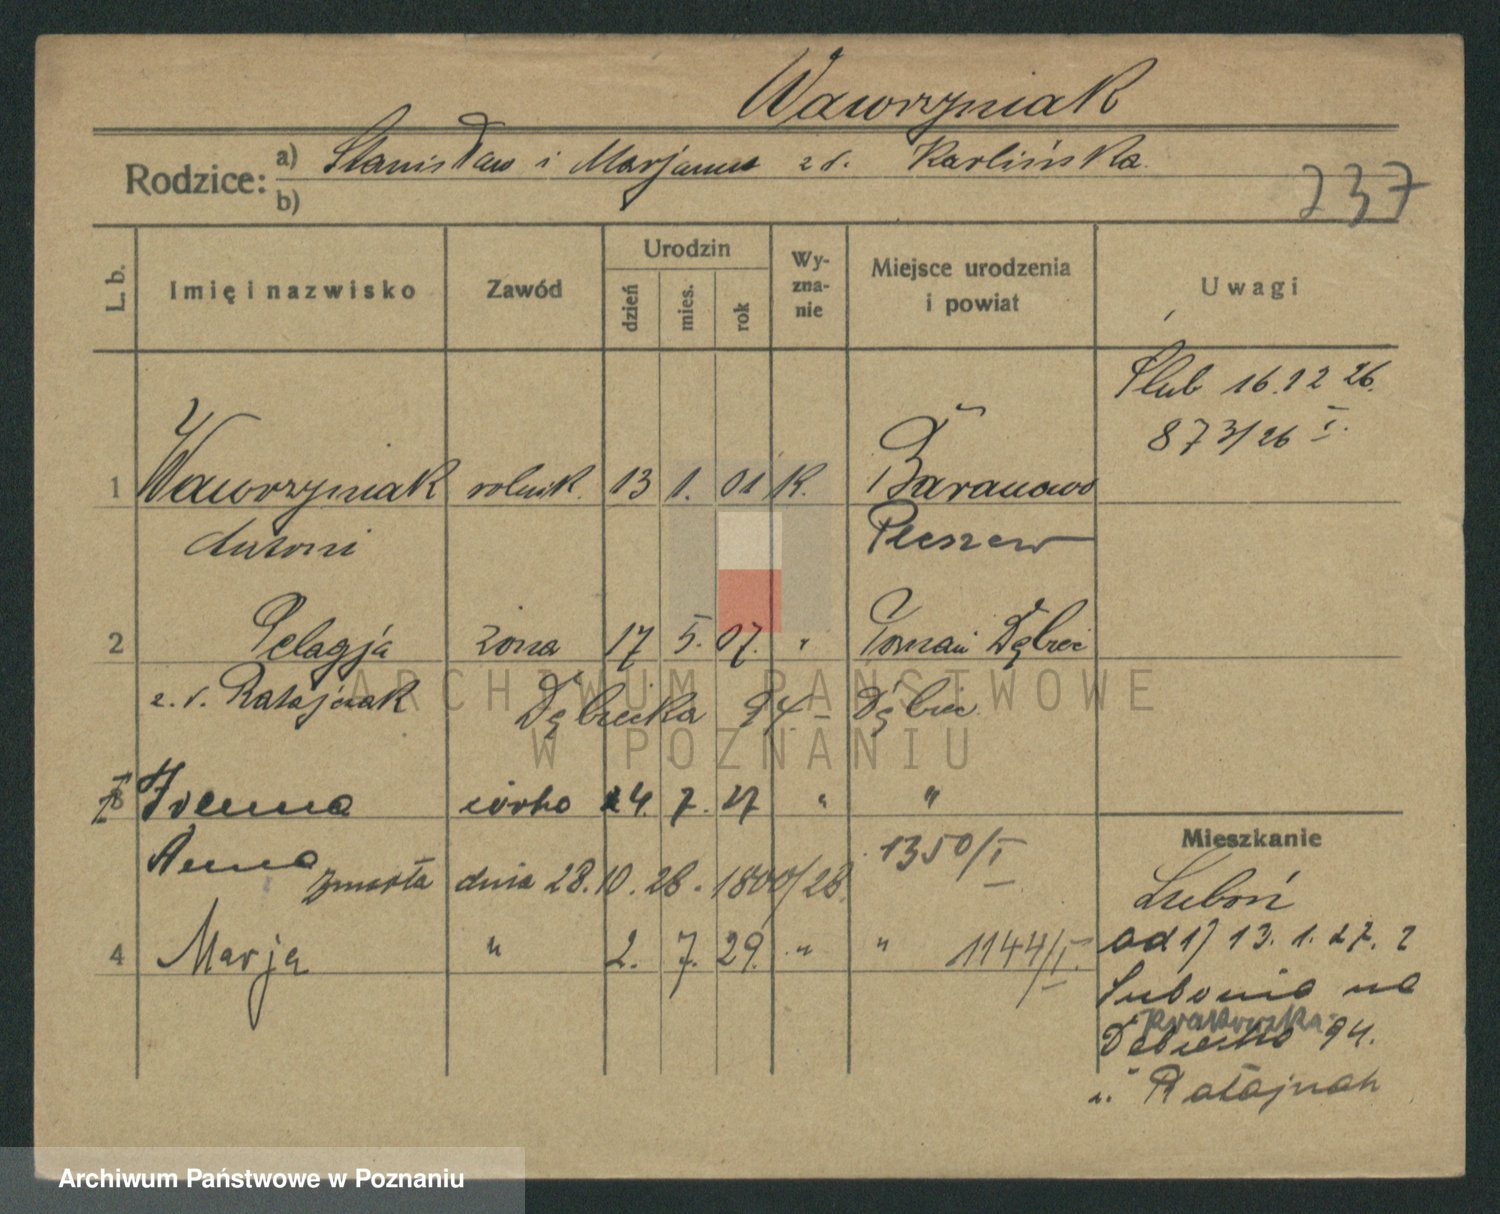 Wawrzyniak
Rodzice: a) Stanisław i Marjanna z d. Karlińska
b)
237
L. b. Imię i nazwisko Zawód Urodzin dzień mies. rok Wy-zna-nie Miejsce urodzenia i powiat Uwagi
Ślub 16.12 26.
873/26 I.
1 Wawrzyniak rolnik. 13 1. 01 K. Baranowo
Antoni Pleszew
2 Pelagja żona 17 5. 07. " Poznań Dębiec
z. d. Ratajczak Dębiecka 94 - Dębiec
3 Iwanna córka 24. 7. 27 " "
Mieszkanie
Anna zmarła dnia 28. 10. 28. 1800/28. 1350/I
Luboń
4 Marja " 2. 7. 29. " " 1144/I.
od 1) 13. 1. 27. z
Lubonia na
Krakowska
Dębiecko 94.
u. Ratajczak
ARCHIWUM PAŃSTWOWE
W POZNANIU
Archiwum Państwowe w Poznaniu